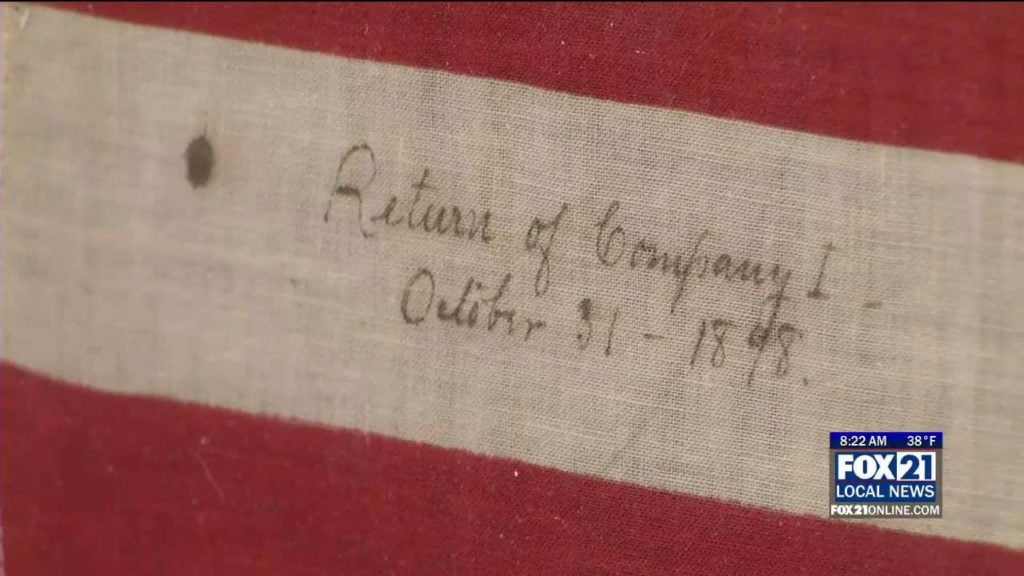 Return of Company I -
October 31 - 1898.
8:22 AM 38°F
FOX21
LOCAL NEWS
FOX21ONLINE.COM